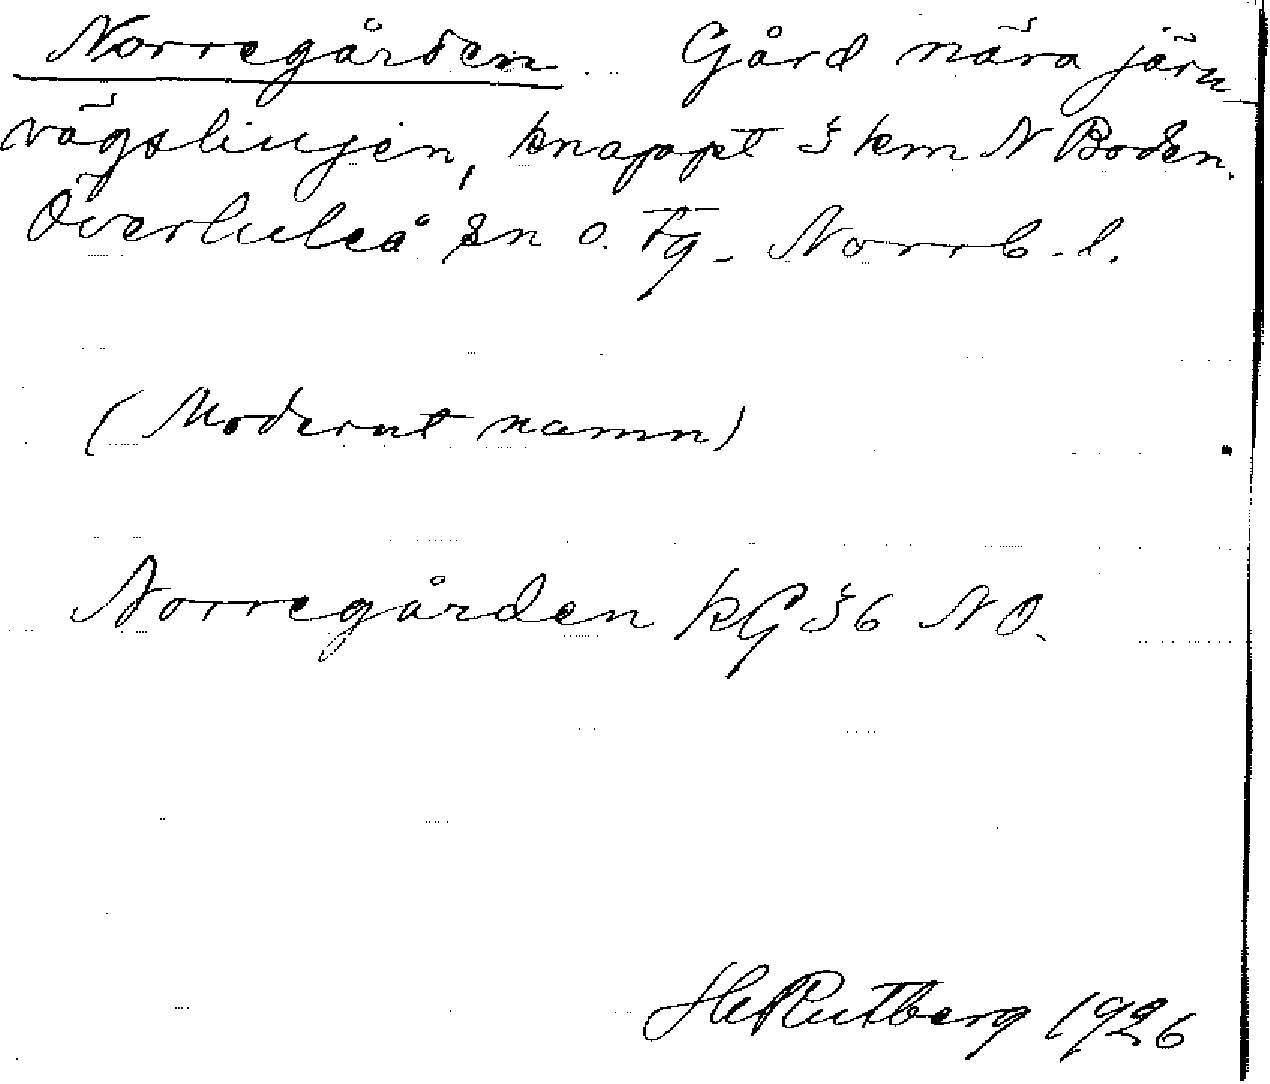 Norregården. Gård nära järn-
vägslinjen, knappt 5 km N Boden.
Överluleå sn o. tg. Norrb. l.
(Modernt namn)
Norregården kG 56 NO.
H Rutberg 1926